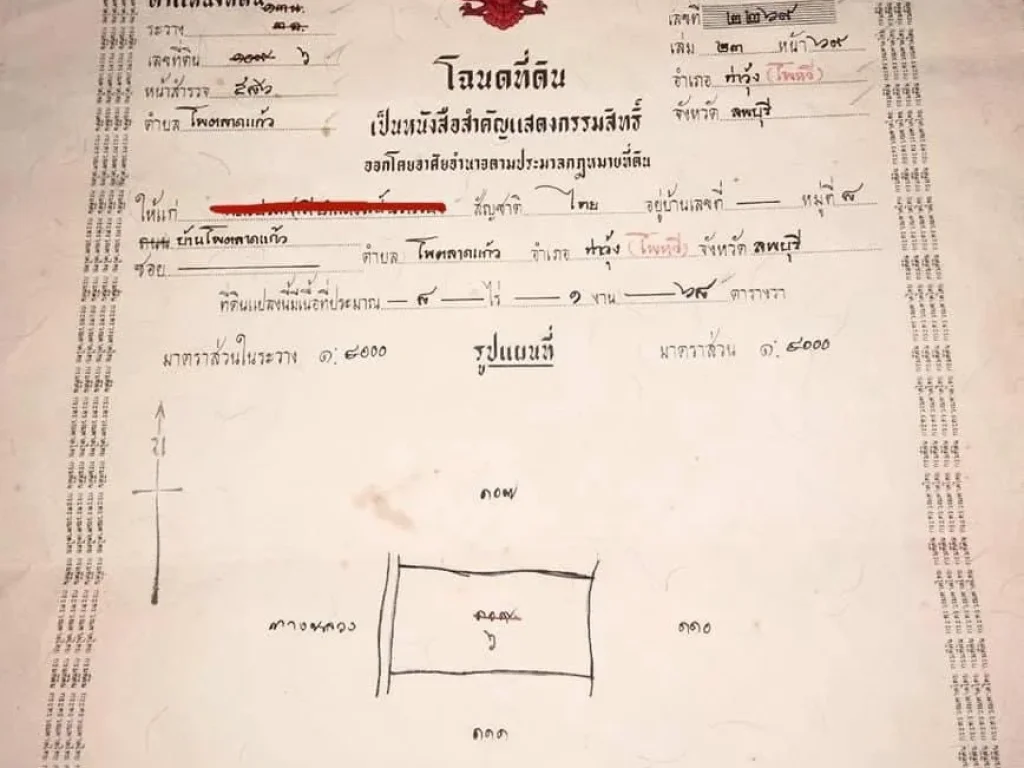 ตำแหน่งที่ดิน
ระวาง
เลขที่ดิน ๑๐๙ ๖
หน้าสำรวจ
ตำบล โพตลาดแก้ว
เลขที่ ๒๒๖๙
เล่ม ๒๓ หน้า ๖๙
อำเภอ ท่าวุ้ง (โพหวี)
จังหวัด ลพบุรี
โฉนดที่ดิน
เป็นหนังสือสำคัญแสดงกรรมสิทธิ์
ออกโดยอาศัยอำนาจตามประมวลกฎหมายที่ดิน
ให้แก่ สัญชาติ ไทย อยู่บ้านเลขที่ — หมู่ที่ ๘
ถนน บ้านโพตลาดแก้ว
ซอย — ตำบล โพตลาดแก้ว อำเภอ ท่าวุ้ง (โพหวี) จังหวัด ลพบุรี
ที่ดินแปลงนี้มีเนื้อที่ประมาณ — ๘ — ไร่ — ๑ งาน — ๖๘ ตารางวา
มาตราส่วนในระวาง ๑:๔๐๐๐ รูปแผนที่ มาตราส่วน ๑:๔๐๐๐
น
๑๐๗
ทางหลวง ๑๐๙ ๑๑๐
๖
๑๑๑